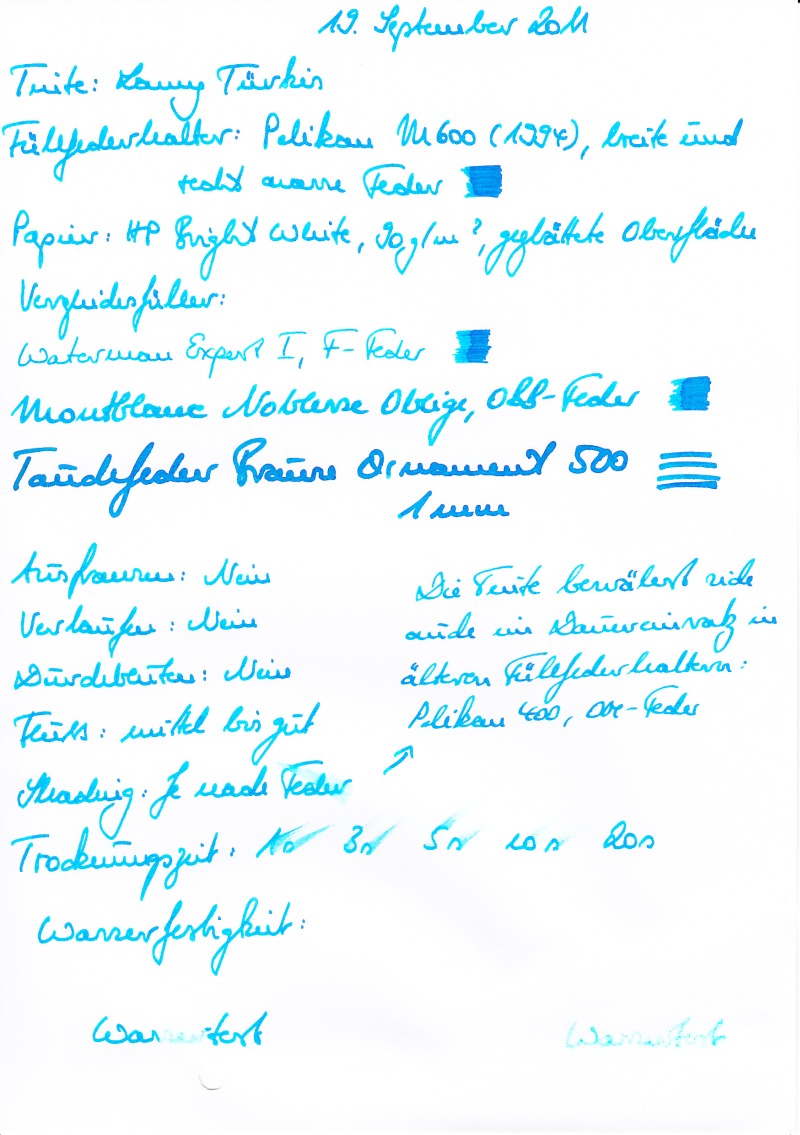 19. September 2011
Tinte: Lamy Türkis
Füllfederhalter: Pelikan M600 (1994), breite und
recht nasse Feder
Papier: HP Bright White, 90g/m², geglättete Oberfläche
Vergleichsfüller:
Waterman Expert I, F-Feder
Montblanc Noblesse Oblige, OBB-Feder
Tauchfeder Brause Ornament 500
1 mm
Ausfransen: Nein
Verlaufen: Nein
Durchbluten: Nein
Fluss: mittel bis gut
Shading: Je nach Feder
Die Tinte bewährt sich
auch im Dauereinsatz in
älteren Füllfederhaltern:
Pelikan 400, Feder
Trocknungszeit: 1s 3s 5s 10s 20s
Wasserfestigkeit:
Wassertest Wassertest